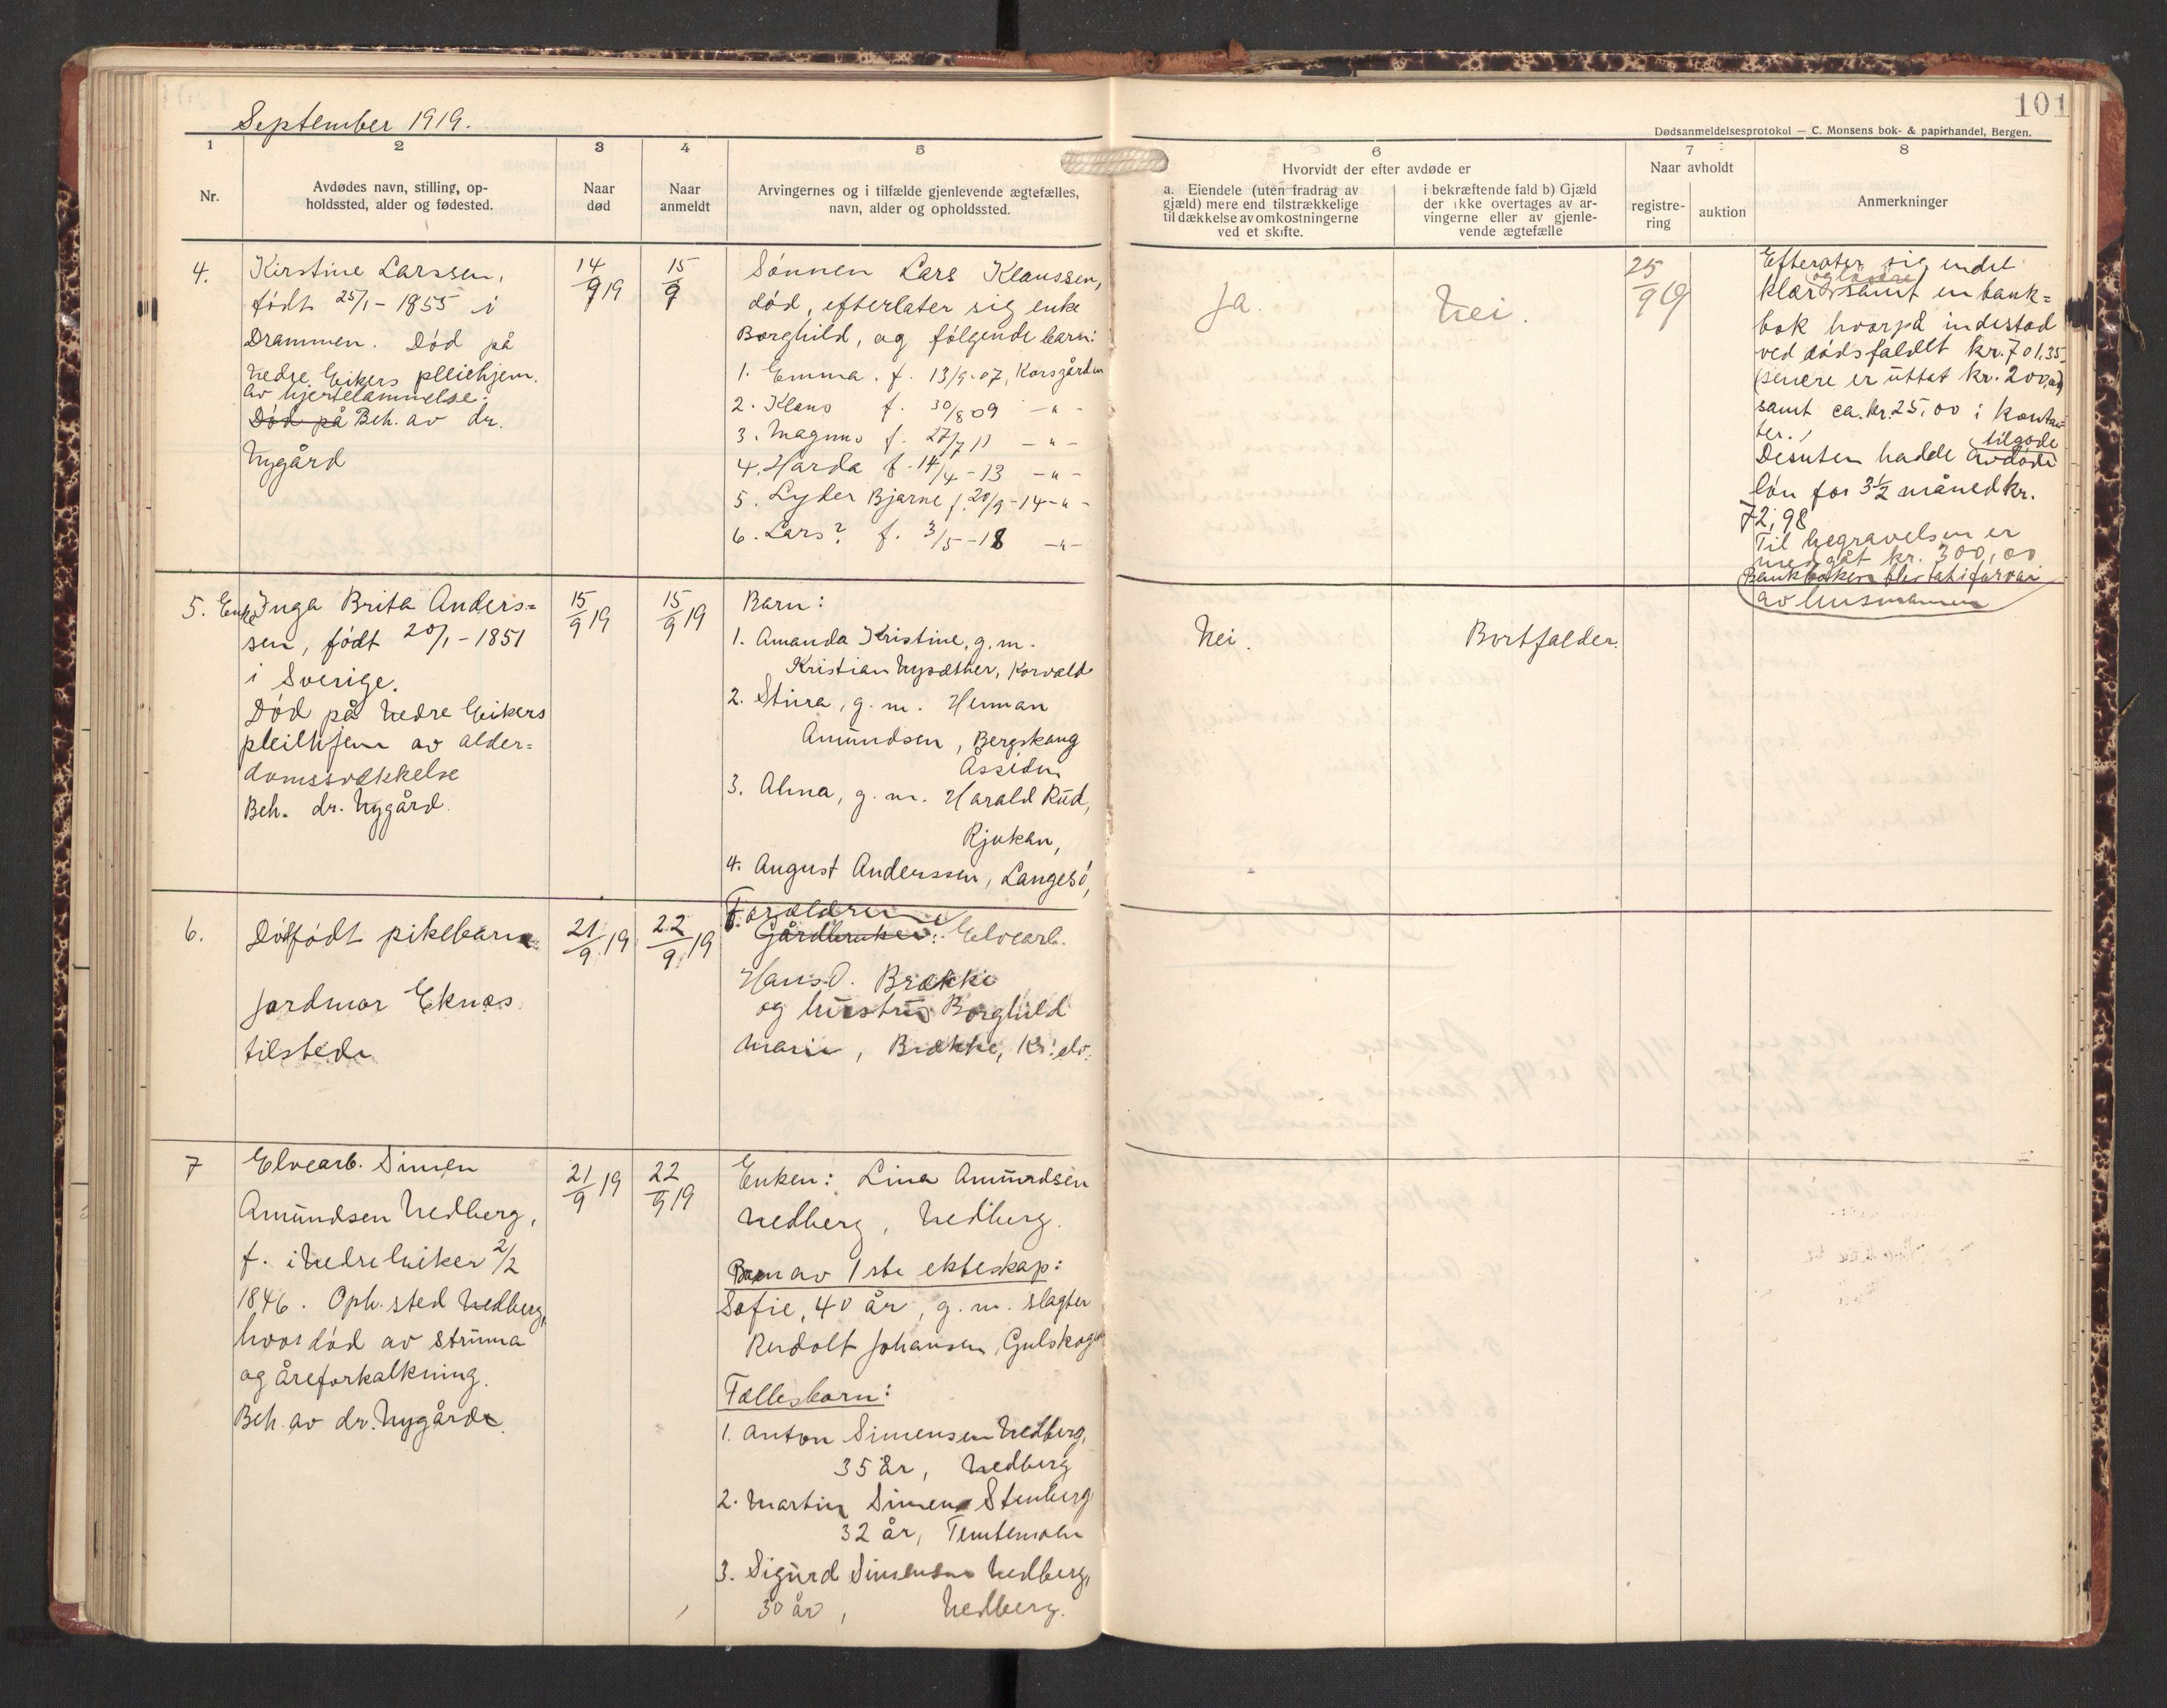 101
September 1919.
Dødsanmeldelsesprotokol — C. Monsens bok- & papirhandel, Bergen.
1
2
3
4
5
6
7
8
Nr.
Avdødes navn, stilling, op-
holdssted, alder og fødested.
Naar
død
Naar
anmeldt
Arvingernes og i tilfælde gjenlevende ægtefælles,
navn, alder og opholdssted.
Hvorvidt der efter avdøde er
a. Eiendele (uten fradrag av
gjæld) mere end tilstrækkelige
til dækkelse av omkostningerne
ved et skifte.
i bekræftende fald b) Gjæld
der ikke overtages av ar-
vingerne eller av gjenle-
vende ægtefælle
Naar avholdt
registre-
ring
auktion
Anmerkninger
4.
Kirstine Larssen,
født 25/1 - 1855 i
Drammen. Død på
Nedre Eikers pleiehjem.
av hjertelammelse.
Død på Beh. av dr.
Nygård
14/9 19
15/9
Sønnen Lars Klaussen,
død, efterlater sig enke
Borghild, og følgende barn:
1. Emma. f. 13/9-07, Korsgården
2. Klaus f. 30/8 09 -"-
3. Magnus f. 27/7 11 -"-
4. Harda f. 14/4-13 -"-
5. Lyder Bjarne f. 20/9-14 -"-
6. Lars? f. 3/5-18 -"-
Ja.
Nei.
25/9 19
Efterater sig endel
og løsøre
klær samt en bank=
bok hvorpå indestod
ved dødsfaldet kr. 701,35
(senere er uttat kr. 200,00)
samt ca. kr. 25,00 i kontan=
ter.
tilgode
Desuten hadde avdøde
løn for 3½ måned kr.
72,98
Til begravelsen er
medgåt kr. 300,00
Bankboken blir tat i forvar
av lensmannen
5.
Enke Inga Brita Anders=
sen, født 20/1 - 1851
i Sverige.
Død på Nedre Eikers
pleiehjem av alder=
domssvækkelse
Beh. dr. Nygård.
15/9 19
15/9 19
Barn:
1. Amanda Kristine, g.m.
Kristian Nysæther, Korvald
2. Stina, g.m. Herman
Amundsen, Bergskaug
Åssiden
3. Alma, g.m. Harald Rud,
Rjukan,
4. August Anderssen, Langesø,
Nei.
Bortfalder.
6.
Dødfødt pikebarn
Jordmor Eknes
tilstede
21/9 19
22/9 19
Forældre
Gårdbruker: Elvearb.
Hans O. Brække
og hustru Borghild
Marie, Brække, Kr. elv.
7
Elvearb. Simen
Amundsen Nedberg,
f. i Nedre Eiker 2/2
1846. Oph. sted Nedberg,
hvor død av struma
og åreforkalkning.
Beh. av dr. Nygård.
21/9 19
22/9 19
Enken: Lina Amundsen
Nedberg, Nedberg.
Barn av 1ste ekteskap:
Sofie, 40 år, g.m. slagter
Rudolf Johansen, Gulskogen
Fællesbarn:
1. Anton Simensen Nedberg,
35 år, Nedberg
2. Martin Simens Stenberg
32 år, Temtemoen
3. Sigurd Simensen Nedberg,
30 år, Nedberg.